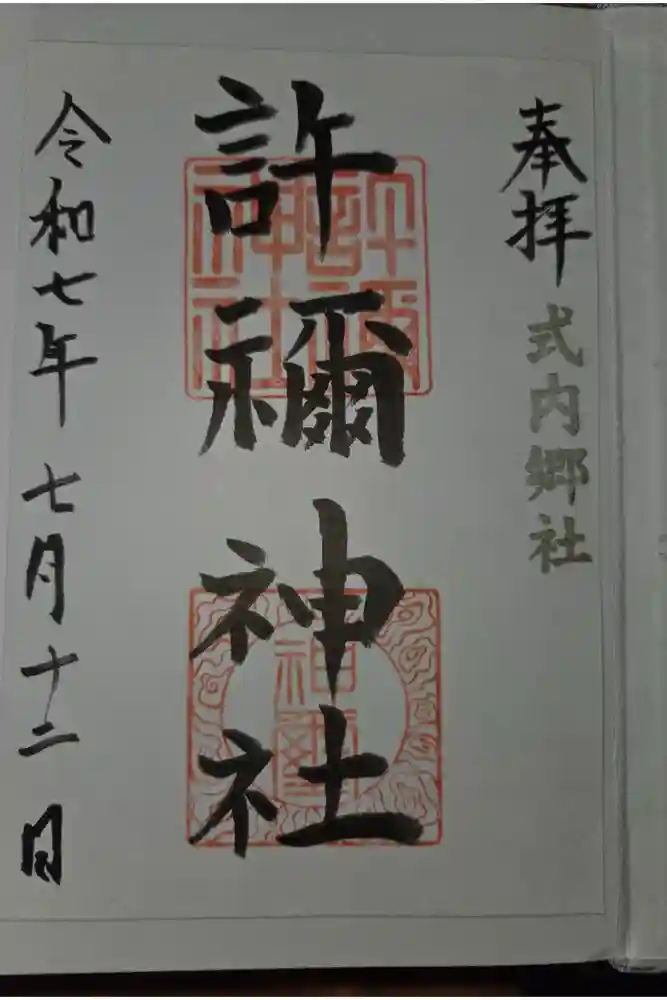 奉拝
式内郷社
許禰神社
許禰神社
神璽
令和七年 七月十二日